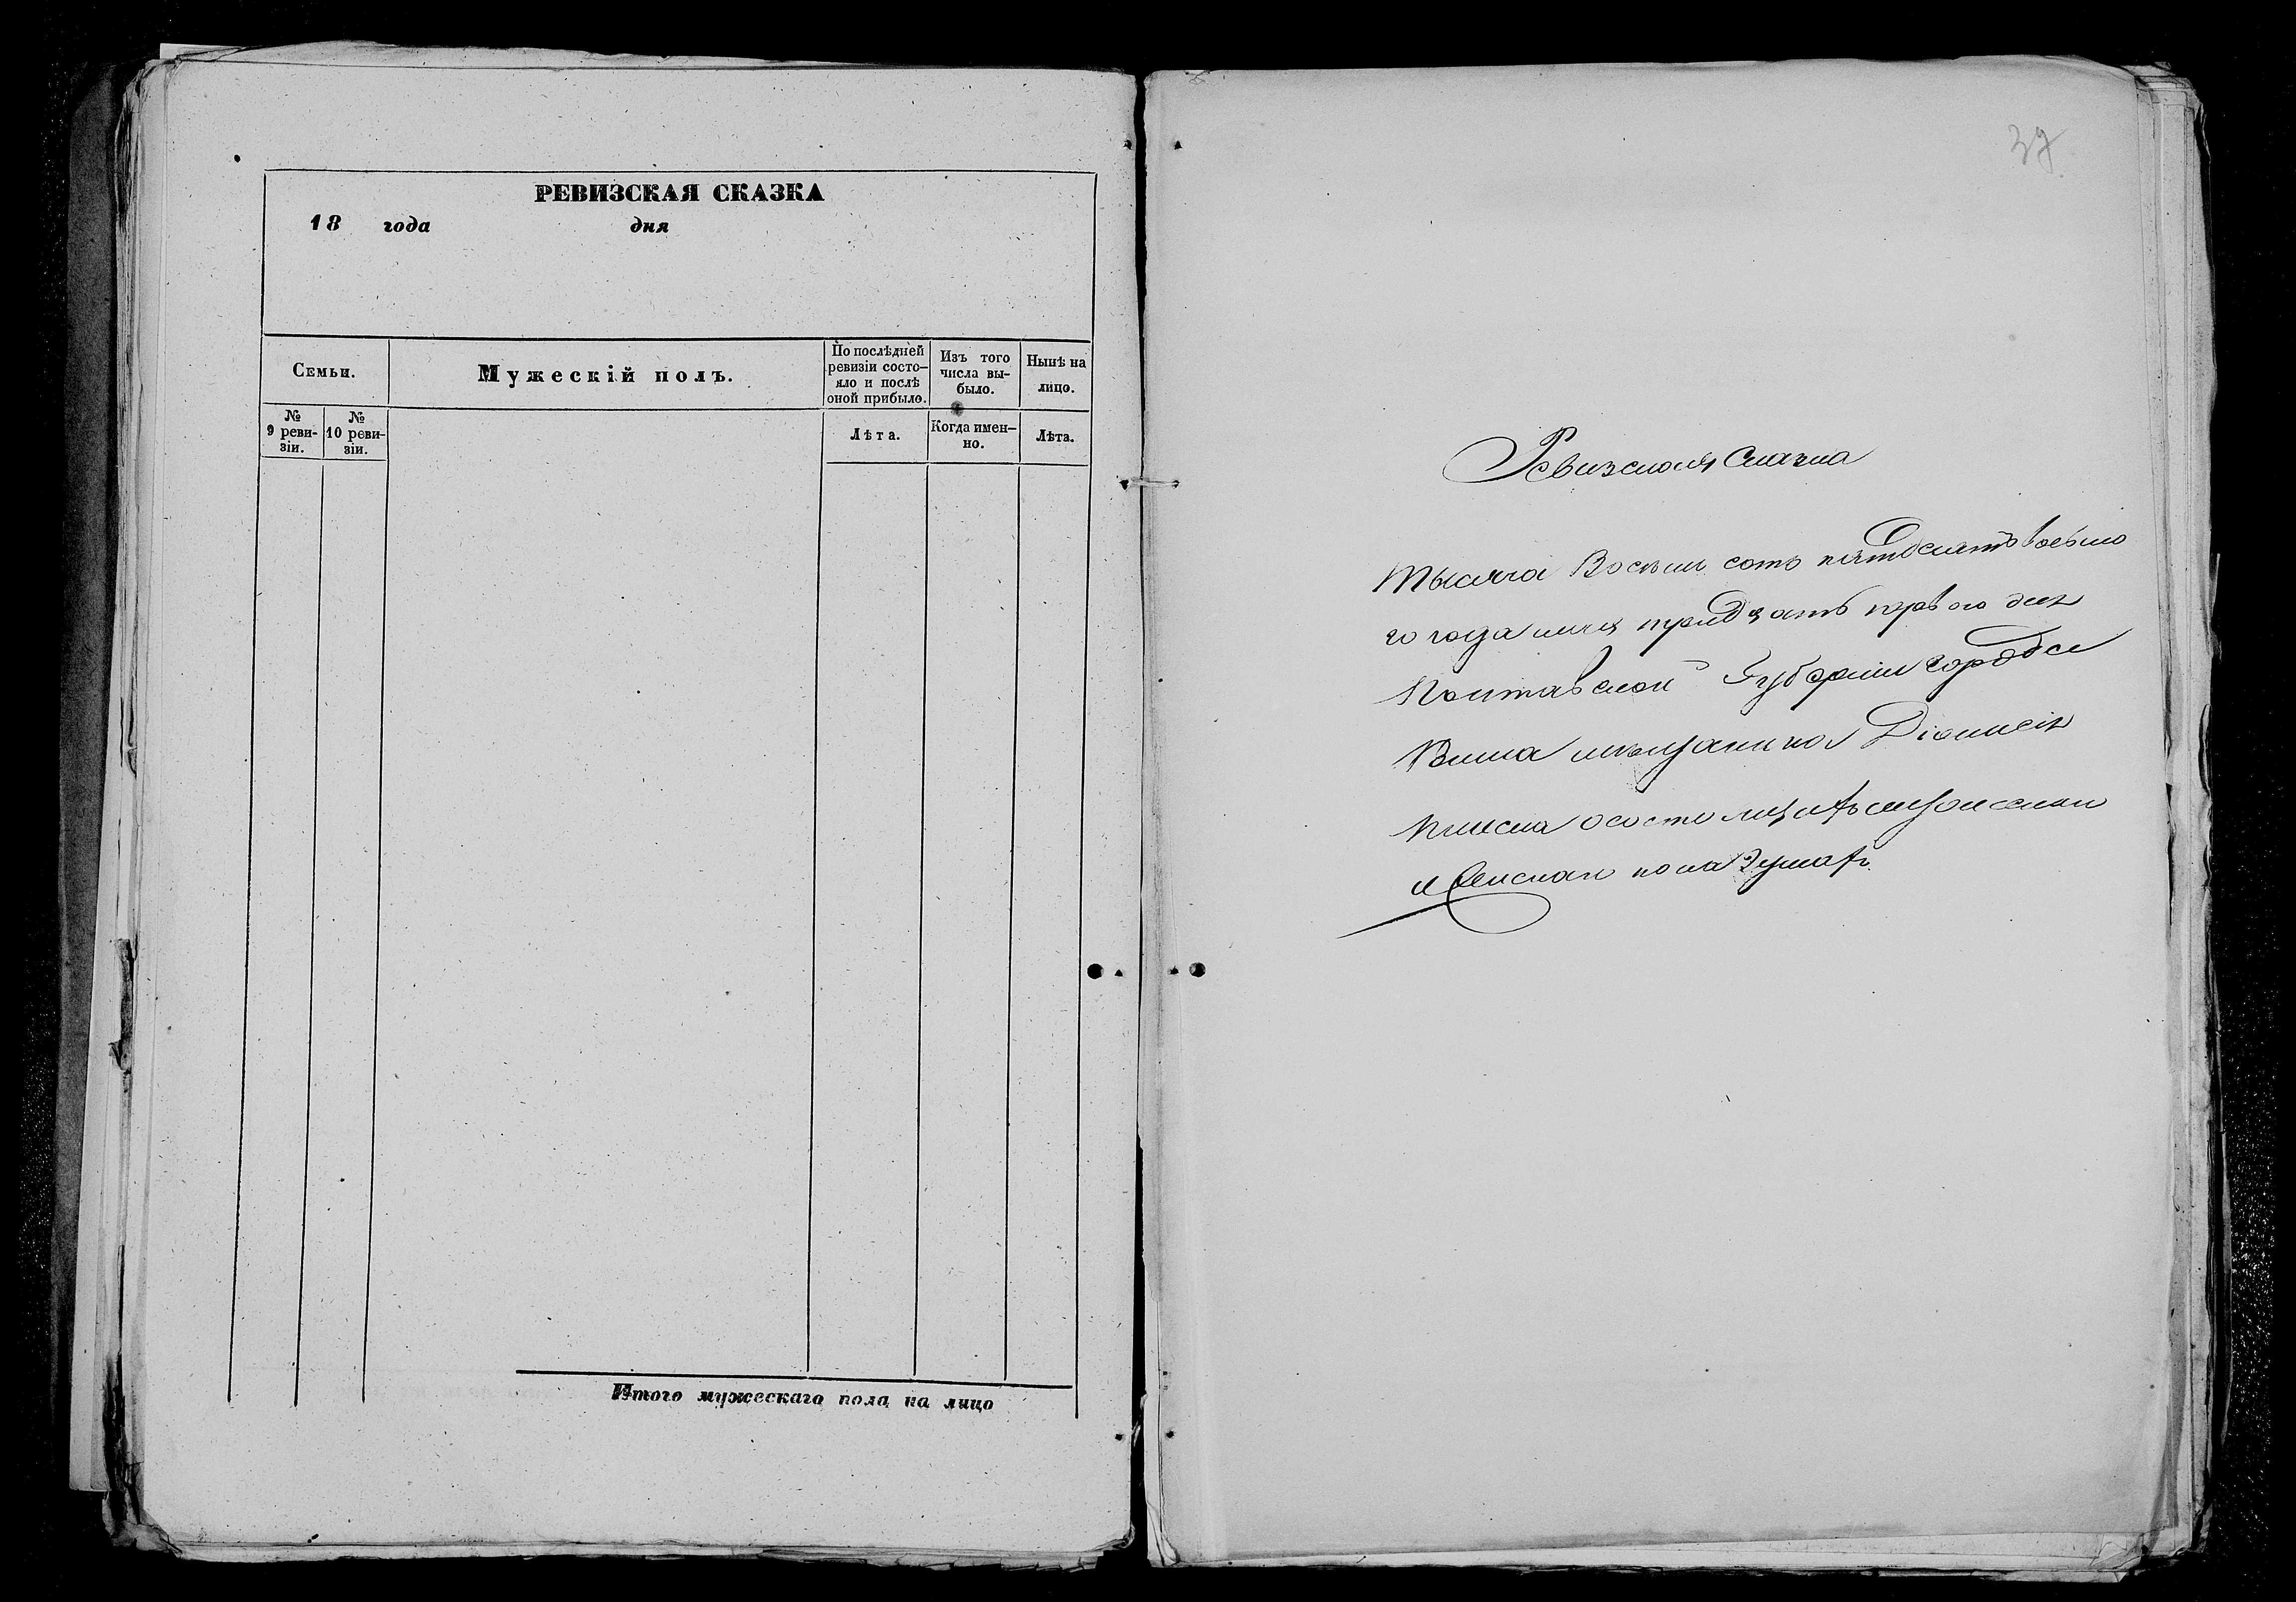 РЕВИЗСКАЯ СКАЗКА
18 года дня
Семьи.
Мужескій полъ.
По послѣдней ревизіи состо-
яло и послѣ
оной прибыло.
Изъ того
числа вы-
было.
Нынѣ на
лицо.
№
9 реви-
зіи.
№
10 реви-
зіи.
Лѣта.
Когда имен-
но.
Лѣта.
Итого мужескаго пола на лицо
37
Ревизская Сказка
Тысяча Восемь сотъ пятдесятъ восьмо
го года мая тридцать первого дня
Полтавской Губерніи города
мѣщанина Діонисія
о состоящихъ мужескаго
и женскаго пола душахъ